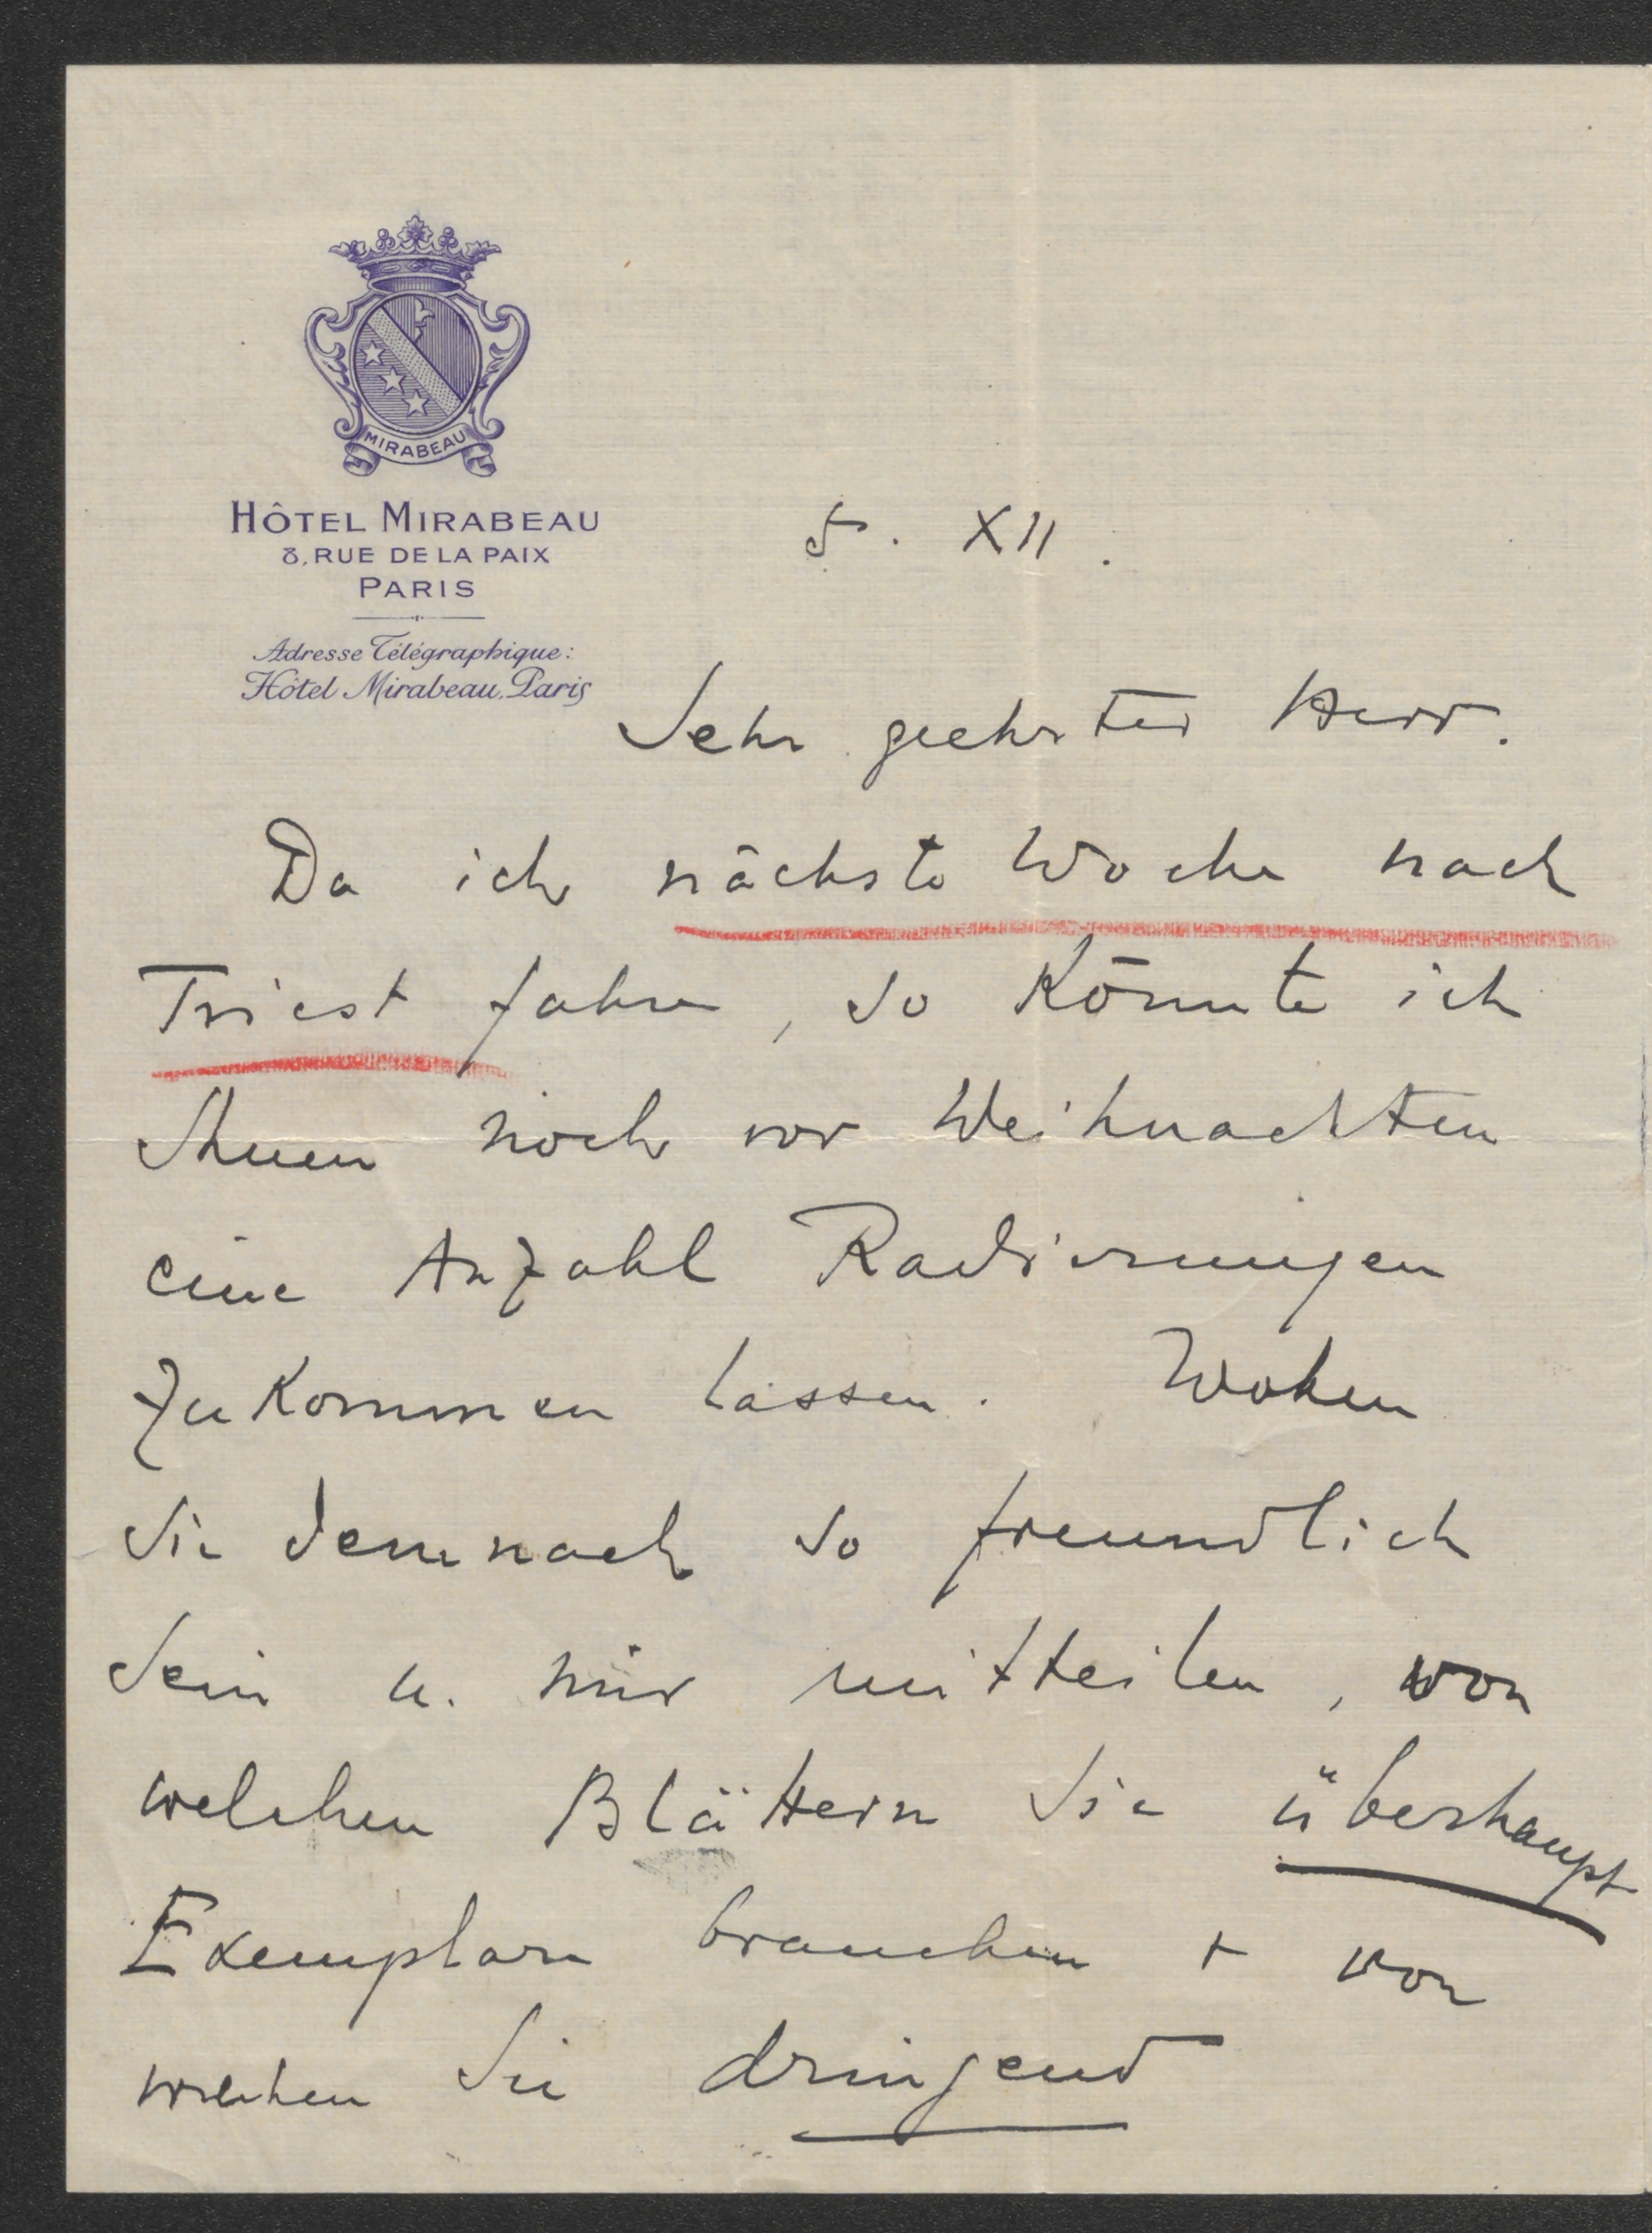 MIRABEAU
HÔTEL MIRABEAU
8, RUE DE LA PAIX
PARIS
Adresse Télégraphique:
Hôtel Mirabeau. Paris
5. XII.
Sehr geehrter Herr.
Da ich nächste Woche nach
Triest fahre, so könnte ich
Ihnen noch vor Weihnachten
eine Anzahl Radierungen
zukommen lassen. Wollen
Sie demnach so freundlich
sein u. mir mitteilen, von
welchen Blättern Sie überhaupt
Exemplare brauchen + von
welchen Sie dringend